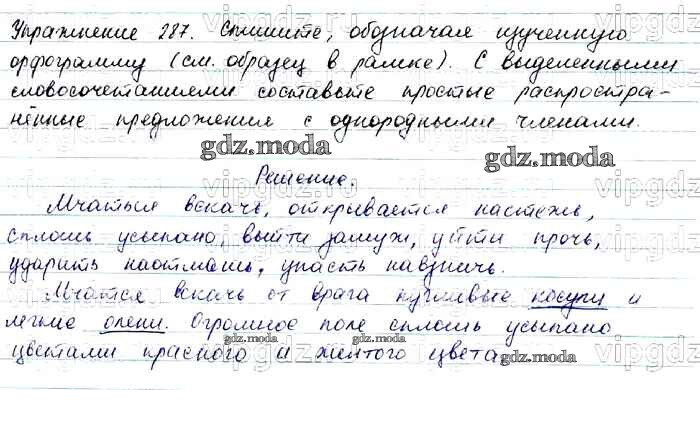 Упражнение 287. Спишите, обозначая изученную
орфограмму (см. образец в рамке). С выделенными
словосочетаниями составьте простые распростра-
нённые предложения с однородными членами.
gdz.moda
gdz.moda
Решение.
Мчаться вскачь, открывается настежь,
сплошь усыпано, выйти замуж, уйти прочь,
ударить наотмашь, упасть навзничь.
Мчатся вскачь от врага пугливые косули и
легкие олени. Огромное поле сплошь усыпано
цветами красного и желтого цвета
gdz.moda
gdz.moda
gdz.moda